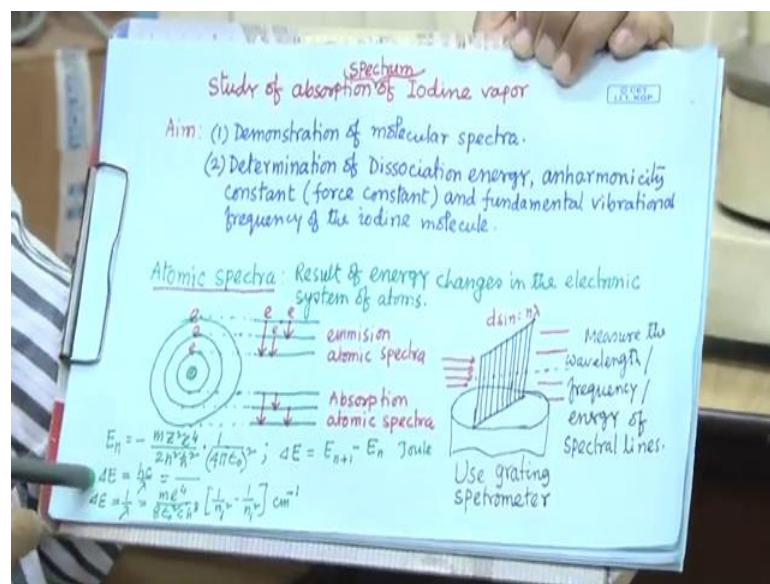 Study of absorption spectrum of Iodine vapor
© CET
I.I.T. KGP
Aim: (1) Demonstration of molecular spectra.
(2) Determination of Dissociation energy, anharmonicity
constant (force constant) and fundamental vibrational
frequency of the iodine molecule.
Atomic spectra: Result of energy changes in the electronic
system of atoms.
e e e
e
e
emmision
atomic spectra
Absorption
atomic spectra
dsin = nλ
Measure the
wavelength/
frequency/
energy of
spectral lines.
Use grating
spetrometer
E_n = - mz²e⁴/2n²ħ² · 1/(4πε₀)² ; ΔE = E_{n+1} - E_n Joule
ΔE = hc/λ = —
ΔE = 1/λ = me⁴/8ε₀²ch³ [1/n_i² - 1/n_j²] cm⁻¹